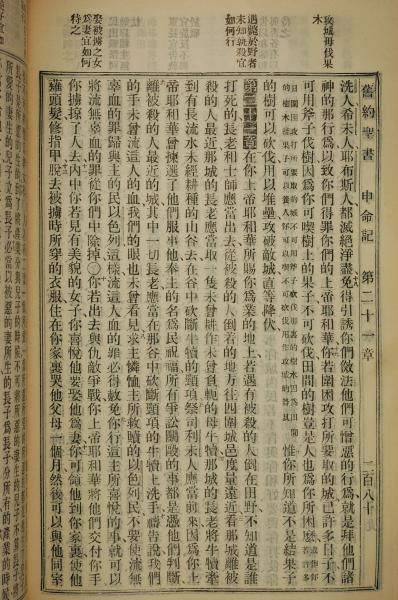 攻城毋伐果
木
遇斃於野者
未知孰殺宜
如何行
娶被擄之女
爲妻宜如何
待之
舊約聖書 申命記 第二十一章 二百八十
洗人希未人耶布斯人都滅絕淨盡免得引誘你們傚法他們可憎惡的行爲就是拜他們諸
神的那行爲以致你們得罪你們的上帝耶和華你若圍困攻打所要取的城已許多日子不
可用斧子伐樹因爲你可喫樹上的果子不可砍伐田間的樹豈是人也爲你所困麼
惟你所知道不是結果子
的樹可以砍伐用以堆壘攻破敵城直等降伏
第二十一章在你上帝耶和華所賜你爲業的地上若遇有被殺的人倒在田野不知道是誰
打死的長老和士師應當出去從被殺的人倒着的地方往四圍城邑度量遠近看那城離被
殺的人最近那城的長老應當取一隻未曾耕作未曾負軛的母牛犢那城的長老將牛犢牽
到有長流水未經耕種的山谷去在谷中砍斷牛犢的頸項祭司利未人應當前來因爲你上
帝耶和華曾揀選了他們服事他奉主的名爲民祝福所有爭訟鬬毆的事都是憑他們判斷
離被殺的人最近的城其中一切長老應當在那谷中砍斷頸項的牛犢上洗手禱告說我們
的手未曾流這人的血我們的眼也未曾看見求主憐恤主所救贖的以色列民不要使流無
辜血的罪歸與主的民以色列這樣流這人血的罪必得赦免你行這主所喜悅的事就可以
將流無辜血的罪從你們中除掉〇你若出去與仇敵爭戰你上帝耶和華將他們交付你手
你擄掠了人去內中你若見有美貌的女子你喜悅他要娶他爲妻你可領他到你家裏使他
薙頭髮修指甲脫去被擄時所穿的衣服住在你家裏哭他父母一個月然後可以與他同室